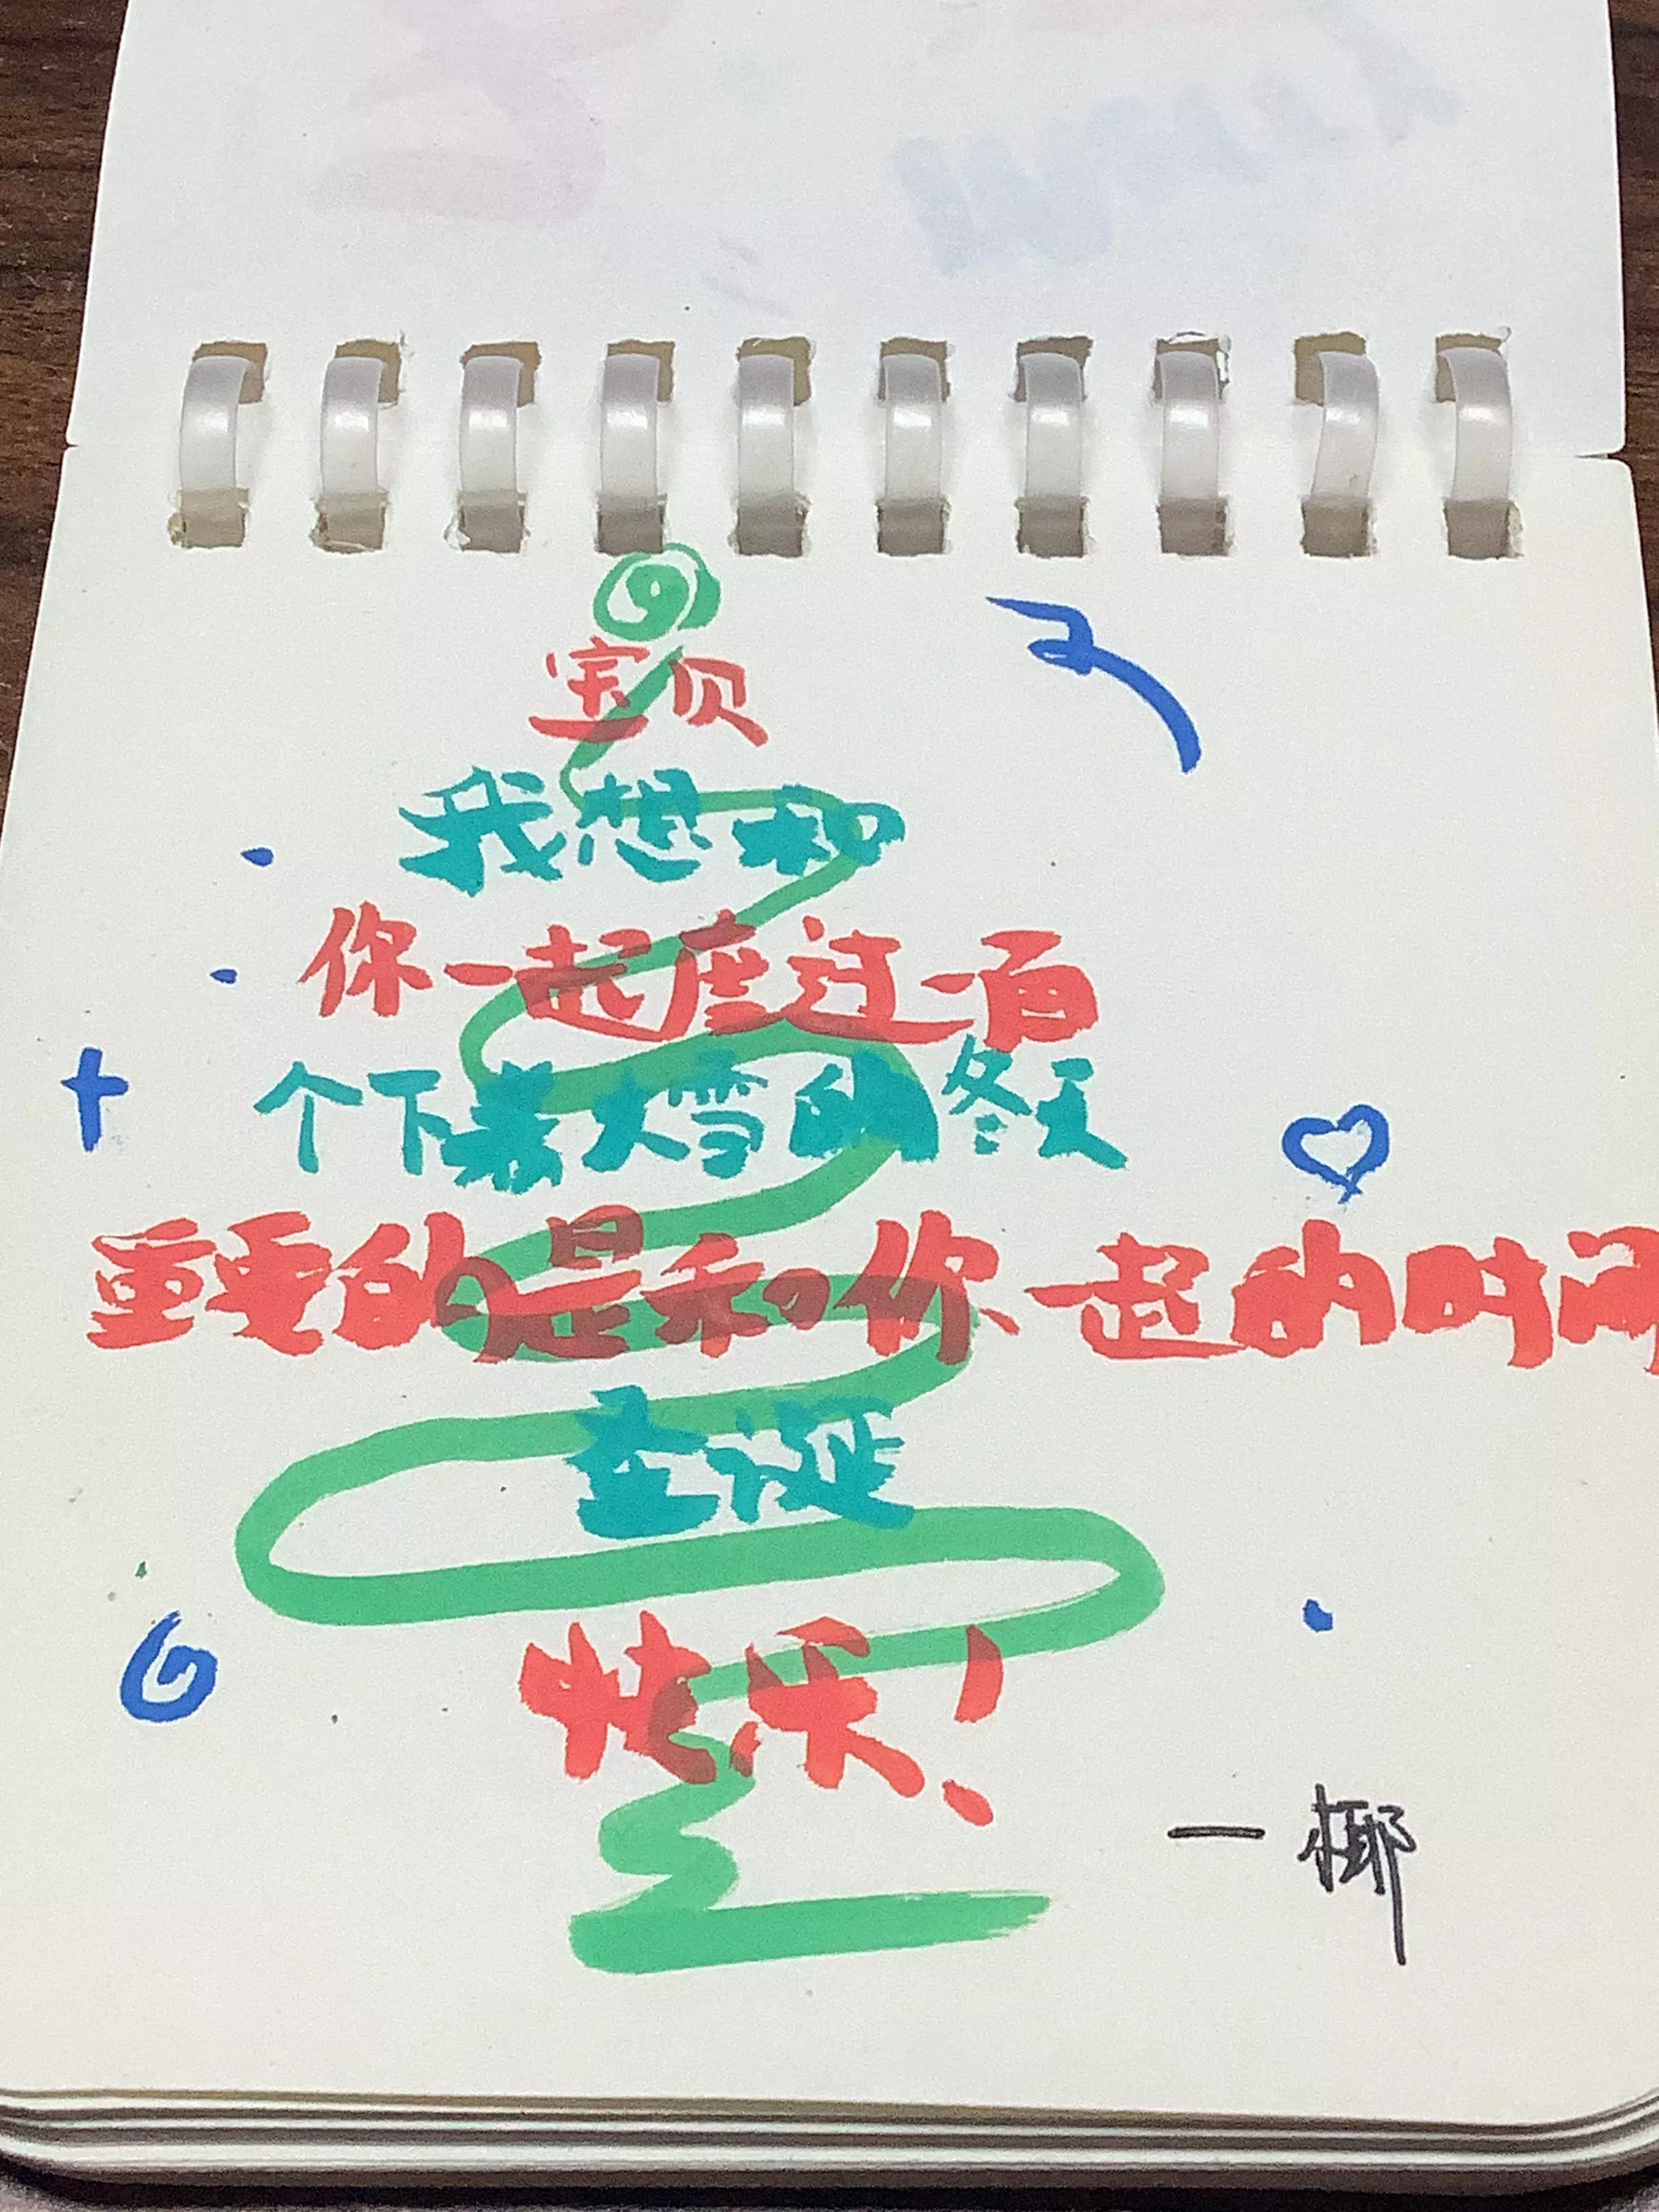 宝贝
我想和
你一起度过一百
个下着大雪的冬天
重要的是和你一起的时间
圣诞
快乐!
一椰